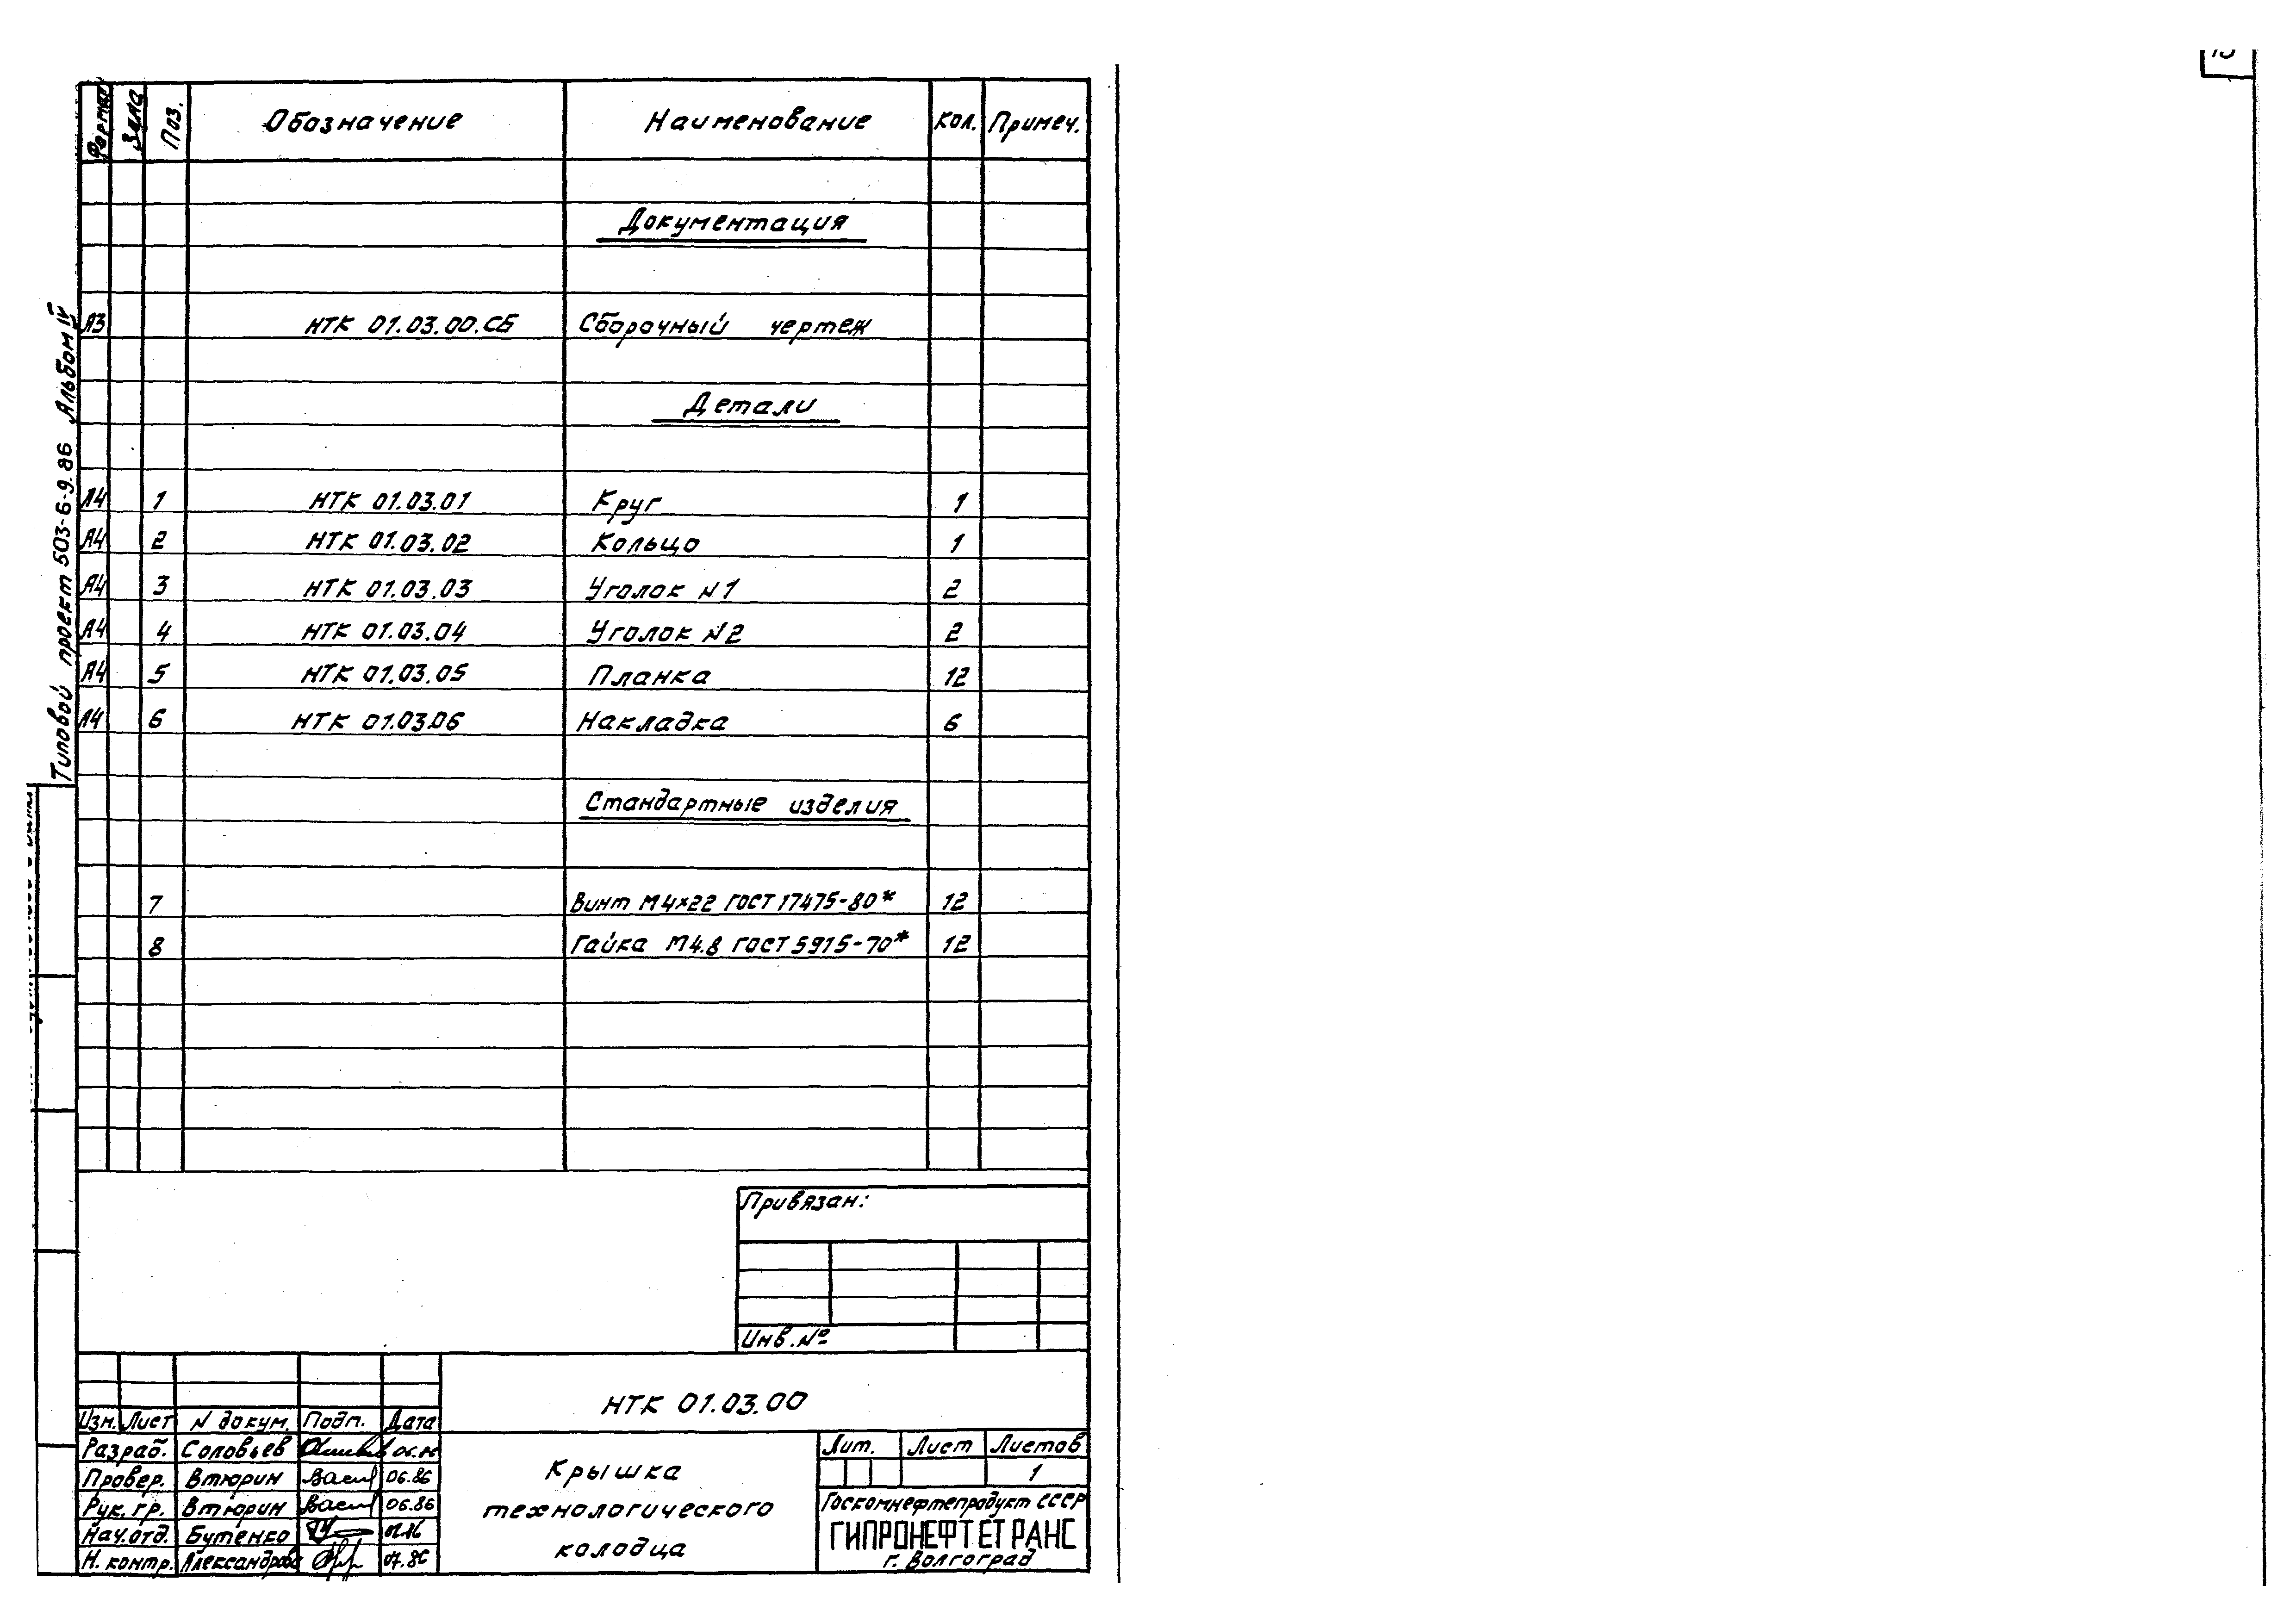 Формат Зона Поз. Обозначение Наименование Кол. Примеч.
Документация
А3 НТК 01.03.00.СБ Сборочный чертеж
Детали
А4 1 НТК 01.03.01 Круг 1
А4 2 НТК 01.03.02 Кольцо 1
А4 3 НТК 01.03.03 Уголок N1 2
А4 4 НТК 01.03.04 Уголок N2 2
А4 5 НТК 01.03.05 Планка 12
А4 6 НТК 01.03.06 Накладка 6
Стандартные изделия
7 Винт М4×22 ГОСТ 17475-80* 12
8 Гайка М4.8 ГОСТ 5915-70* 12
Типовой проект 503-6-9.86 Альбом IV
Привязан:
Инв. №
НТК 01.03.00
Изм. Лист N докум. Подп. Дата
Разраб. Соловьев
Провер. Втюрин 06.86
Рук. гр. Втюрин 06.86
Нач.отд. Бутенко
Н. контр. Александрова 07.86
Крышка
технологического
колодца
Лит. Лист Листов
1
Госкомнефтепродукт СССР
ГИПРОНЕФТЕТРАНС
г. Волгоград